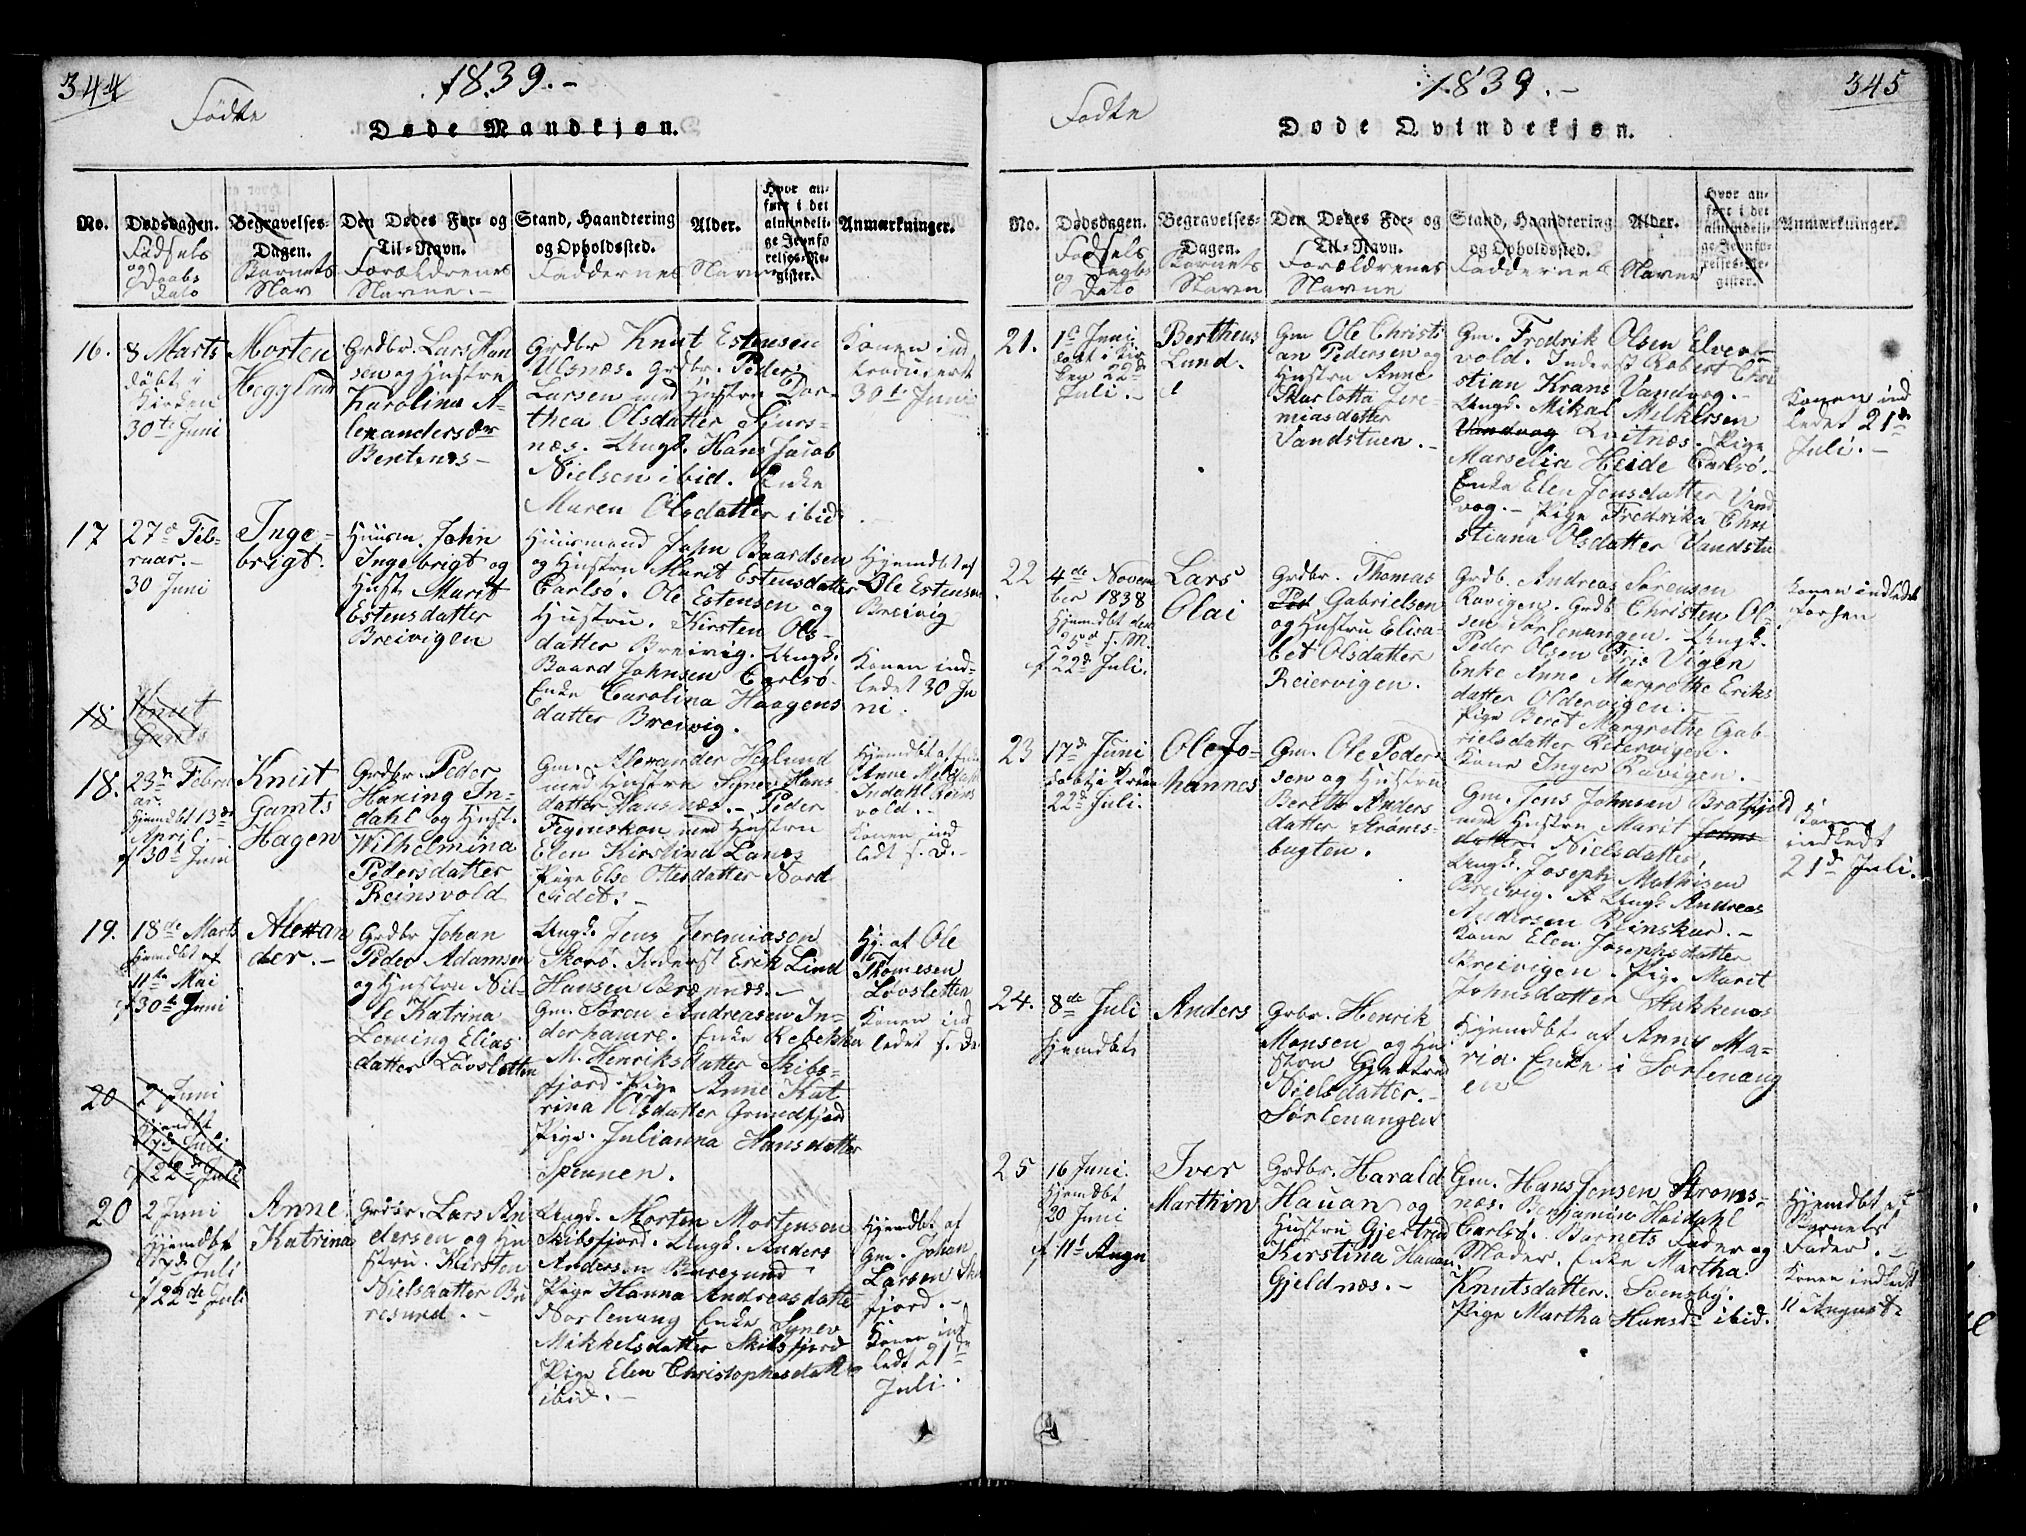 344
1839.-
Fødte
Døde Mandkjøn.
No.
Dødsdagen.
Fødsels
og
Daabs
Dato
Begravelses-
Dagen.
Barnets
Navn
Den Dødes For- og
Til-Navn.
Forældrenes
Navne.-
Stand, Haandtering
og Opholdssted.
Faddernes
Alder.
Navne
Hvor an-
ført i det
almindeli-
ge Jevnfø
relses-Re-
gister.
Anmærkninger.
16.
8 Marts
døbt i
Kirken
30te Juni
Morten
Hegglund
Grdbr. Lars Han
sen og Hustru
Karolina A-
lexandersdr
Bentenes-
Grdbr Knut Estensen
Ulsnæs. Grdbr. Peder
Larsen med Hustru Dor-
thea Olsdatter Sjurs-
næs. Ungk. Hans Jacob
Nielsen ibid. Enke
Maren Olsdatter ibid.
Konen ind
troduceret
30te Juni
17
27de Feb-
ruar.-
30 Juni
Inge-
brigt.
Huusm. John
Ingebrigt og
Hust. Marit
Estensdatter
Breivigen
Huusmand John Baardsen
og Hustru Marit Estensdatter
Carlsø. Ole Estensen og
Hustru. Kirsten Ols-
datter Breivig. Ungk.
Baard Johnsen Carlsø.
Enke Carolina Haagens
datter Breivig.
Hjemdbt af
Ole Estensen
Breivig
Konen ind-
ledet 30 Ju
ni.
18
Knut
Gamts
18.
23de Febru
ar.
Hjemdbt 13de
April.
f 30te Juni
Knut
Gamts
Hagen
Grdbr. Peder
Haning In-
dahl og Hust.
Wilhelmina
Pedersdatter
Reinsvold
Gm. Alexander Heglund
med Hustru Synev Hans
datter Hansnæs.- Peder
Figenskou med Hustru
Elen Kirstina Lanes
Pige Else Ottesdatter Nord
eidet.-
Hjemdbt af Enke
Anne
Indahl Reins
vold.-
Konen ind
ledt s. D.-
19.
18de Marts
Hjemdbt af
11te Mai
f 30te Juni
Alexan
der.-
Grdbr Johan
Peder Adamsen
og Hustru Nil-
le Katrina
Lening Elias
datter Løvsletten
Ungk. Jens Jeremiasen
Skorø. Inderst Erik Lind
Hansen Brænnes.-
Gm. Søren Andreasen In-
derhamre. Enke Rebekka
M. Henriksdatter Skibs-
fjord. Pige Anne Kat
rina Olsdatter Grundfjord
Pige. Julianna Hansdatter
Spennen.
Hj. af Ole
Thomesen
Løvsletten
Konen ind
ledet s. D.
20
2 Juni
Hjemdbt
7de Juli
f 22de Juli
20
2 Juni
Hjemdbt
7de Juli
f 22de Juli
Anne
Katrina
Grdbr. Lars An
dersen og Hu
stru. Kirsten
Nielsdatter Bu
resund.-
Ungk. Morten Mortensen
Skibsfjord. Ungk. Anders
Andersen Buresund
Pige Hanna Andreasdatte
Norlenang Enke Synev
Mikkelsdatter Skibsfjord
Pige Elen Christophersdatte
ibid.-
Hjemdbt af
Gm. Johan
Larsen
fjord.-
Konen ind
ledt 21de
Juli.
1839.-
345
Fødte
Døde Qvindekjøn.
No.
Dødsdagen.
Fødsels
og Daabs
Dato
Begravelses-
Dagen.
Barnets
Navn
Den Dødes For- og
Til-Navn.
Forældrenes
Navne
Stand, Haandtering
og Opholdssted.
Faddernes
Alder.
Navne
Hvor an-
ført i det
almindeli-
ge Jevnfø-
relses-Re-
gister.
Anmærkninger.
21.
1te Juni
døbt i Kir
ken 22de
Juli.-
Bertheus
Lund.
Gm Ole Christi
an Pedersen og
Hustru Anne
Skarlotta Jere-
miasdatter
Sandstuen.-
Gm. Fredrik Olsen Elve
vold. Inderst Robert Chri
stian Krans Vandvog.-
Ungk. Mikal Mikkelsen
Vandvog Kvitnæs. Pige
Marselia Heide Carlsø.-
Enke Elen Jensdatter Vand
vog.- Pige Fredrika Chri
stiana Olsdatter Vandstu
Konen ind
ledet 21de
Juli.-
22
4de Novem
ber 1838
Hjemdbt den
25de s. M.
f 22de Juli.
Lars
Olai
Grdbr. Thomas
Ped Gabrielsen
og Hustru Elisa-
bet Olsdatter
Reiervigen.
Grdb. Andreas Sørensen
Ravigen. Grdb Christen Ol-
sen Sørlenangen. Ungk.
Peder Olsen Vigen
Enke Anne Margrethe Eriks
datter Oldervigen.
Pige Beret Margrethe Gab-
rielsdatter Reiervigen.
Kone Inger Ravigen.
Konen indledet
forhen
23
17de Juni
døbt i Kirken
22de Juli.
Ole Jo-
hannes
Gm. Ole Peder-
sen og Hustru
Bereth Anders
datter Strøms-
bugten.
Gm. Jens Johnsen Bratfjeld
med Hustru Marit Johns-
datter Nielsdatter,
Ungk. Joseph Mathisen
Breivig. A Ungk Andreas
Andersen Reinskar.-
Kone Elen Josephsdatter
Breivigen. Pige Marit
Johnsdatter Stakkenæs
Konen
indledt
21de Juli.
24.
8de Juli
Hjemdbt
Anders
Grbr. Henrik
Monsen og Hu
stru Gjertrud
Nielsdatter.-
Sørlenangen
Hjemdbt af Anne Ma-
ria. Enke i Sørlenang
en
25
16 Juni.
Hjemdbt
20 Juni
f 11t Augu
Iver
Marthin
Grdbr. Harald
Hauan og
Hustru Gjertrud
Kirstina Hauan.
Gjeldnæs.-
Gm. Hans Jensen Strøms-
næs. Benjamin Heidahl
Carlsø. Barnets Fader og
Moder. Enke Martha
Knutsdatter. Sømsby.
Pige Martha Hansd. ibid.
Hjemdbt af
Barnets
Fader.-
Konen indledt
11 August